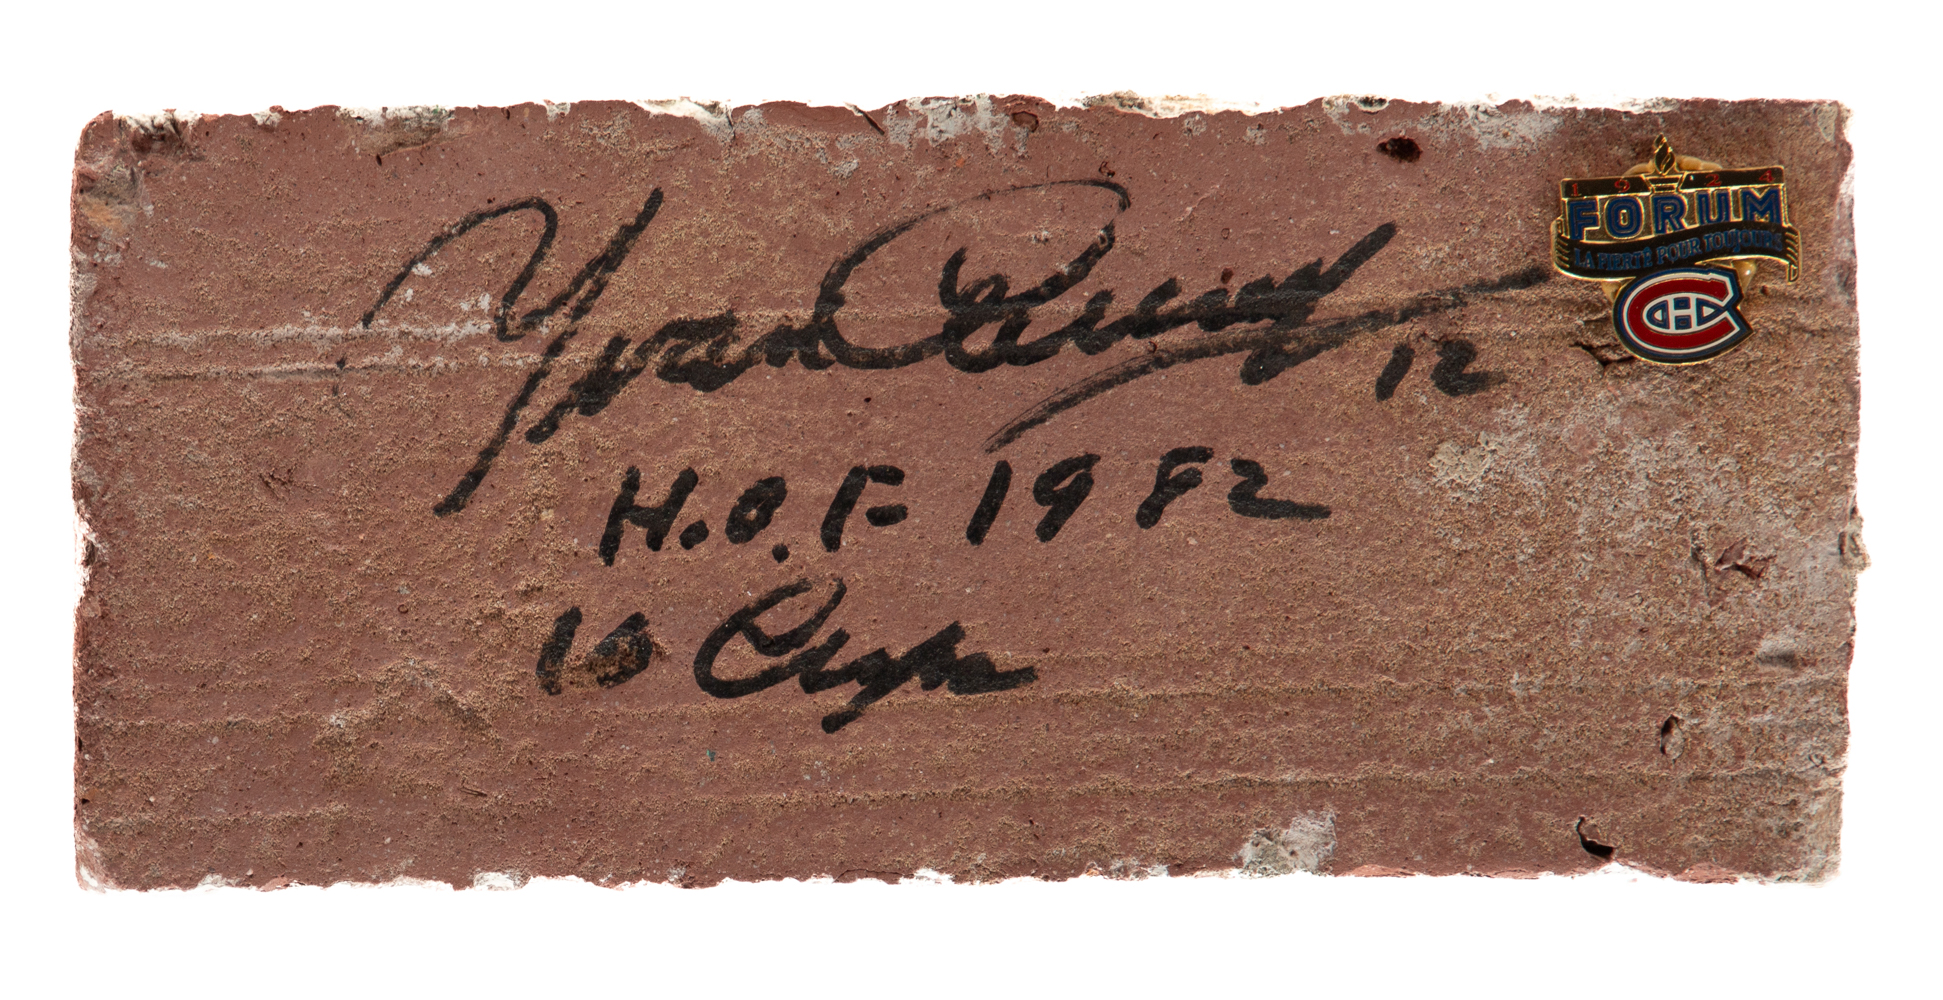 Yvan Cournoyer 12
H.O.F. 1982
10 Cups
1924
FORUM
LA FIERTÉ POUR TOUJOURS
CH